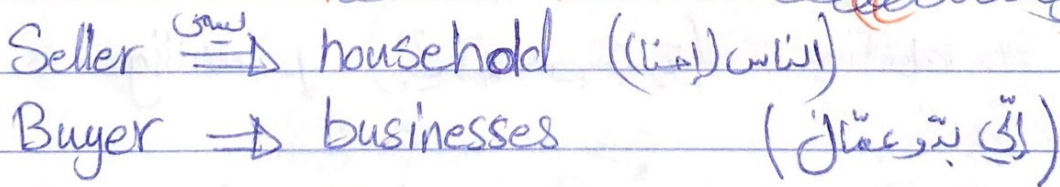 Seller يسمى ⇒ household (الناس (إحنا))
Buyer ⇒ businesses (إلّي بدّو عمّال)